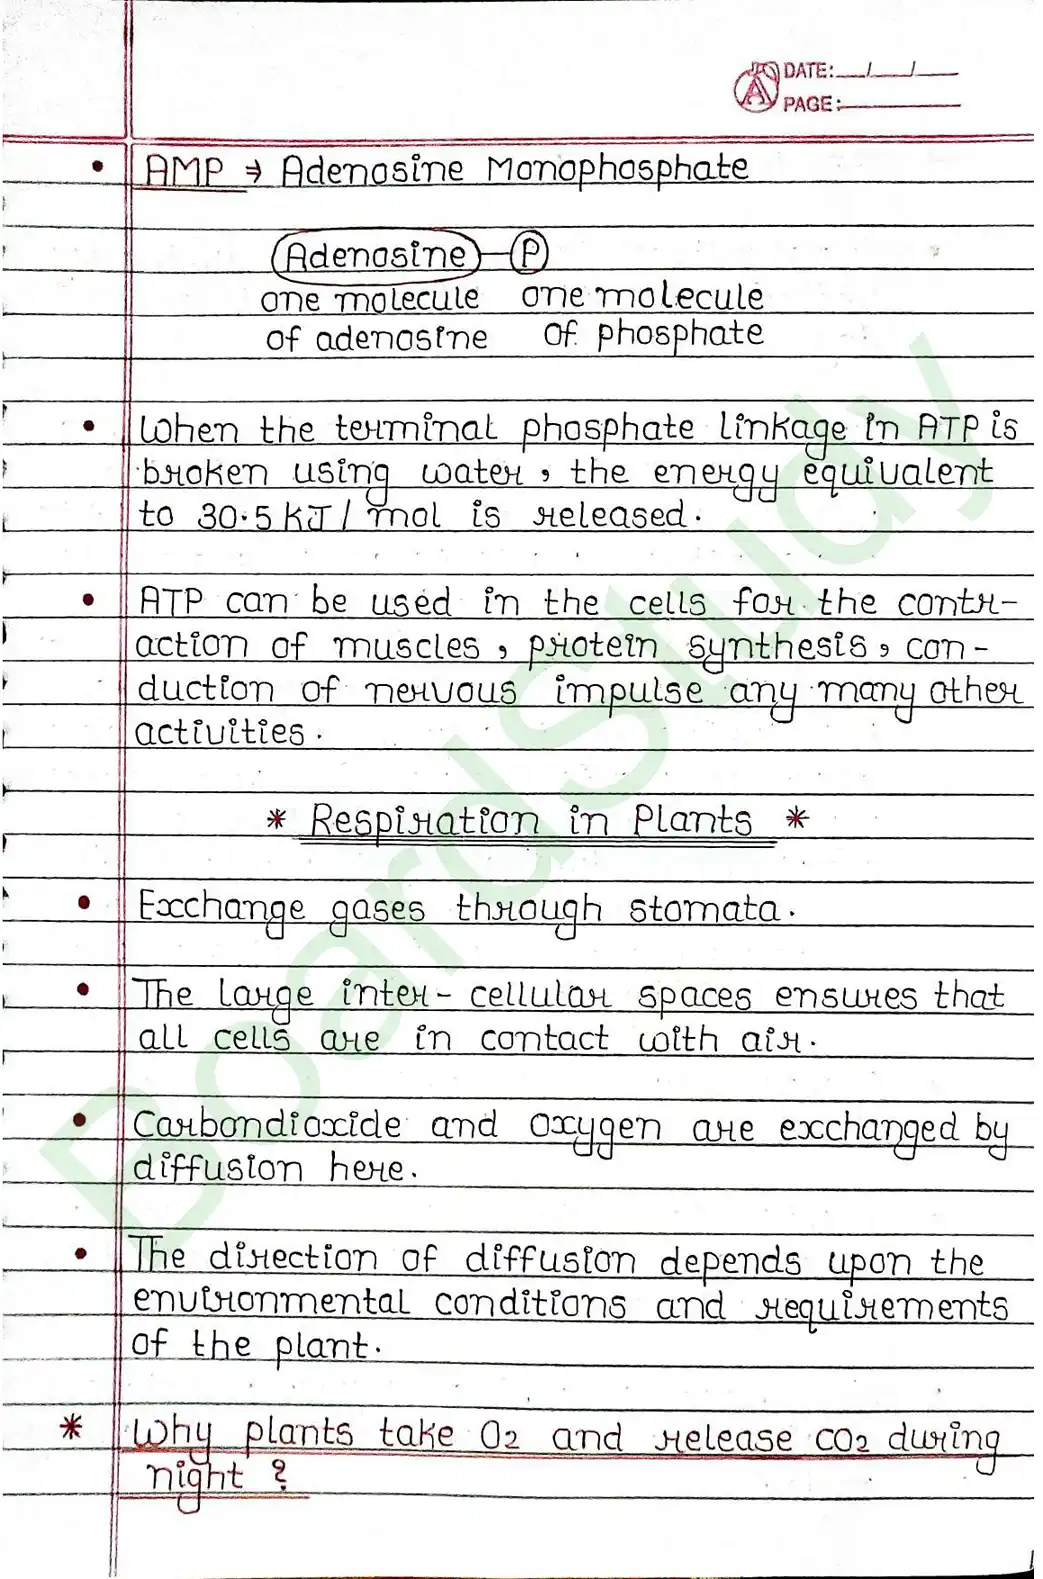 DATE: __/__/__
PAGE:
• AMP → Adenosine Monophosphate
Adenosine — P
one molecule one molecule
of adenosine of phosphate
• When the terminal phosphate linkage in ATP is
broken using water, the energy equivalent
to 30.5 KJ / mol is released.
• ATP can be used in the cells for the contr-
action of muscles, protein synthesis, con-
duction of nervous impulse any many other
activities.
* Respiration in Plants *
• Exchange gases through stomata.
• The large inter-cellular spaces ensures that
all cells are in contact with air.
• Carbondioxide and oxygen are exchanged by
diffusion here.
• The direction of diffusion depends upon the
environmental conditions and requirements
of the plant.
* Why plants take O2 and release CO2 during
night ?
BoardStudy